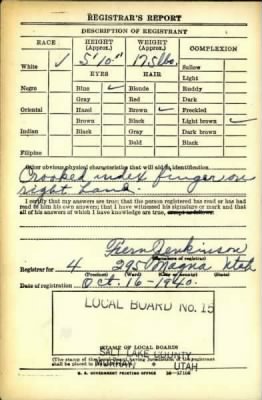 REGISTRAR'S REPORT
DESCRIPTION OF REGISTRANT
RACE HEIGHT (Approx.) WEIGHT (Approx.) COMPLEXION
White ✓ 5' 10" 175 lbs. Sallow
EYES HAIR Light
Negro Blue ✓ Blonde Ruddy
Gray Red Dark
Oriental Hazel Brown ✓ Freckled
Brown Black Light brown ✓
Indian Black Gray Dark brown
Bald Black
Filipino
Other obvious physical characteristics that will aid in identification
Crooked index finger on
right hand.
I certify that my answers are true; that the person registered has read or has had
read to him his own answers; that I have witnessed his signature or mark and that
all of his answers of which I have knowledge are true, except as follows:
Fern Jenkinson
(Signature of registrar)
Registrar for 4 295 Magna Utah
(Precinct) (Ward) (State)
Date of registration Oct. 16-1940.
LOCAL BOARD No. 15
STAMP OF LOCAL BOARD
SALT LAKE COUNTY
(The stamp of the Local Board having jurisdiction of the registrant
MURRAY UTAH
U. S. GOVERNMENT PRINTING OFFICE 16-17105